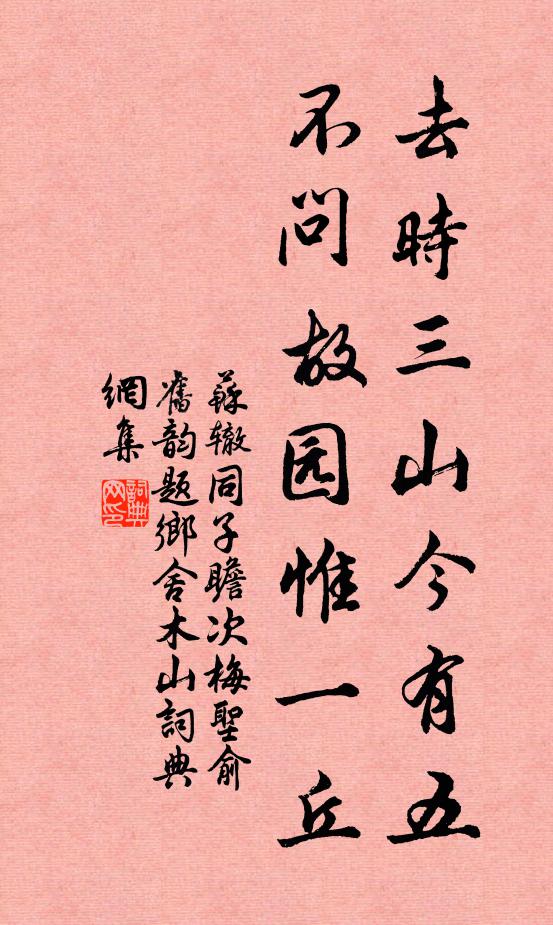 去時三山今有五
不问故园惟一丘
蘇辙同子瞻次梅聖俞
舊韵题鄉舍木山詞典
網集
詞典網印